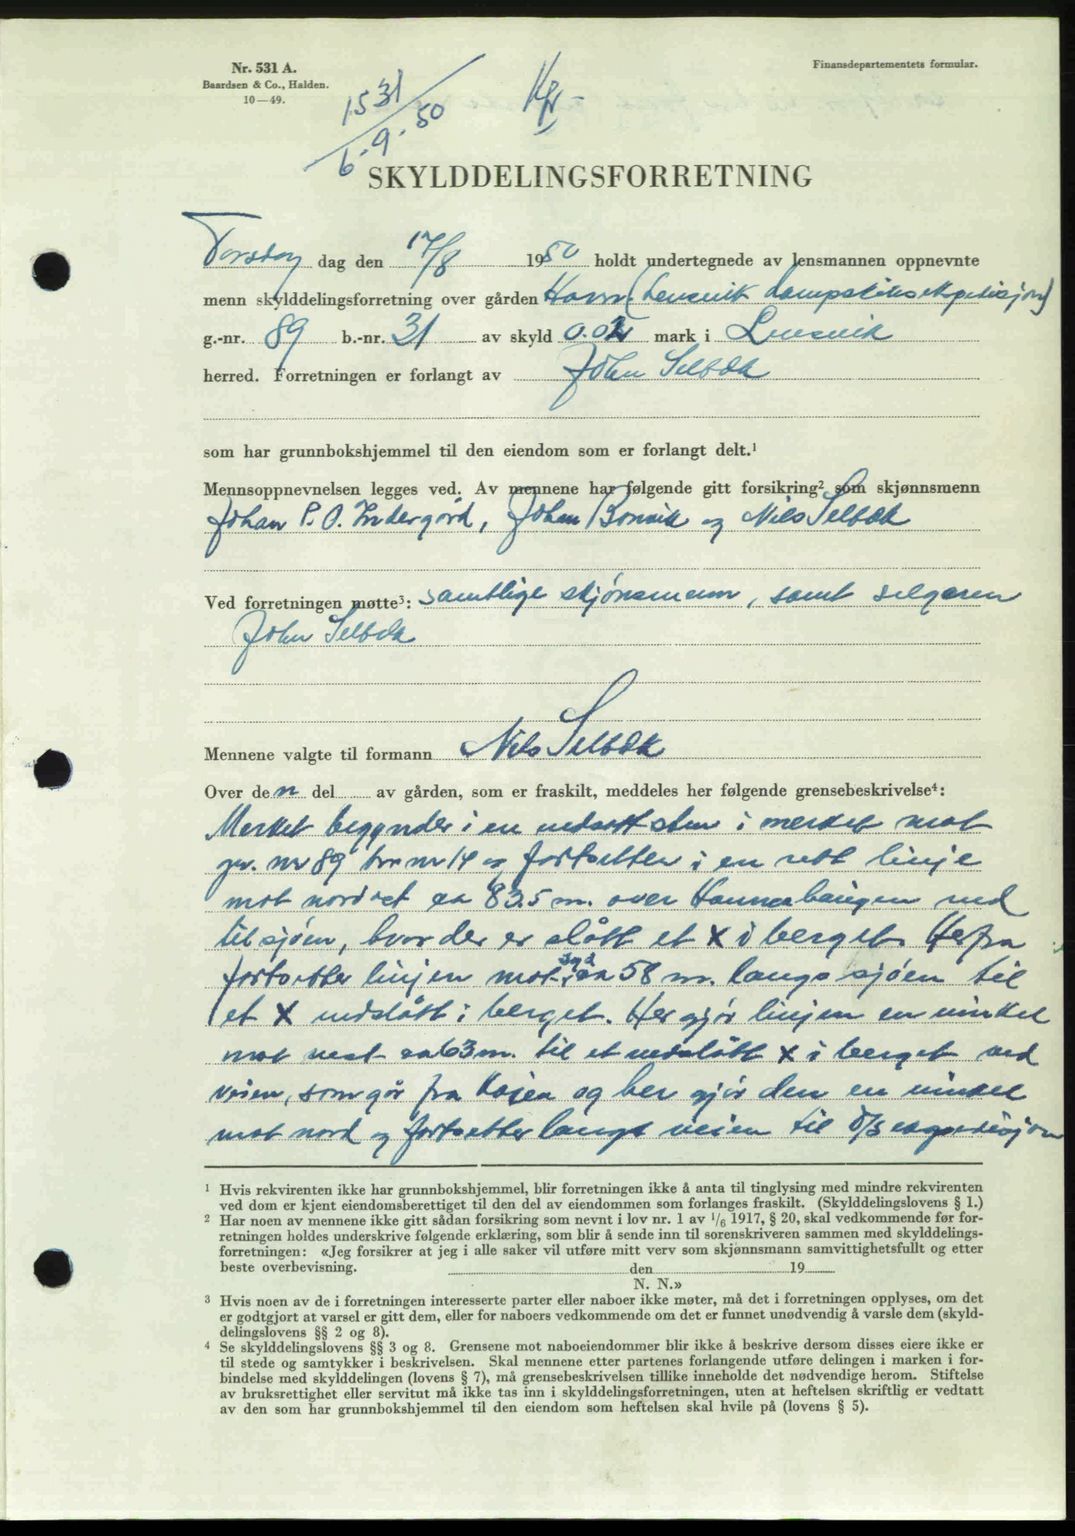 Nr. 531 A.
Baardsen & Co., Halden.
10—49.
Finansdepartementets formular.
1531
6-9-50
Kfr-
SKYLDDELINGSFORRETNING
Torsdag dag den 17/8 1950 holdt undertegnede av lensmannen oppnevnte
menn skylddelingsforretning over gården Hamn (Lensvik Dampskibsekspedisjon)
g.-nr. 89 b.-nr. 31 av skyld 0.02 mark i Lensvik
herred. Forretningen er forlangt av John Selbæk
som har grunnbokshjemmel til den eiendom som er forlangt delt.¹
Mennsoppnevnelsen legges ved. Av mennene har følgende gitt forsikring² som skjønnsmenn
Johan P. O. Indergård, Johan Bonvik og Nils Selbæk
Ved forretningen møtte³: samtlige skjønsmenn, samt selgeren
John Selbæk
Mennene valgte til formann Nils Selbæk
Over den del av gården, som er fraskilt, meddeles her følgende grensebeskrivelse⁴:
Merket begynder i en nedsatt sten i merket mot
gr. nr 89 br nr 14 og fortsetter i en rett linje
mot nordost ca 83.5 m. over Hamnehaugen ned
til sjøen, hvor der er slått et X i berget. Herfra
fortsetter linjen mot syd ca 58 m. langs sjøen til
et X nedslått i berget. Her gjør linjen en vinkel
mot vest ca 63 m. til et nedslått X i berget ved
veien, som går fra Kaien og her gjør den en vinkel
mot nord og fortsetter langs veien til D/S ekspedisjon
¹ Hvis rekvirenten ikke har grunnbokshjemmel, blir forretningen ikke å anta til tinglysing med mindre rekvirenten
ved dom er kjent eiendomsberettiget til den del av eiendommen som forlanges fraskilt. (Skylddelingslovens § 1.)
² Har noen av mennene ikke gitt sådan forsikring som nevnt i lov nr. 1 av 1/6 1917, § 20, skal vedkommende før for-
retningen holdes underskrive følgende erklæring, som blir å sende inn til sorenskriveren sammen med skylddelings-
forretningen: «Jeg forsikrer at jeg i alle saker vil utføre mitt verv som skjønnsmann samvittighetsfullt og etter
beste overbevisning. den 19
N. N.»
³ Hvis noen av de i forretningen interesserte parter eller naboer ikke møter, må det i forretningen opplyses, om det
er godtgjort at varsel er gitt dem, eller for naboers vedkommende om det er funnet unødvendig å varsle dem (skyld-
delingslovens §§ 2 og 8).
⁴ Se skylddelingslovens §§ 3 og 8. Grensene mot naboeiendommer blir ikke å beskrive dersom disses eiere ikke er
til stede og samtykker i beskrivelsen. Skal mennene etter partenes forlangende utføre delingen i marken i for-
bindelse med skylddelingen (lovens § 7), må grensebeskrivelsen tillike inneholde det nødvendige herom. Stiftelse
av bruksrettighet eller servitut må ikke tas inn i skylddelingsforretningen, uten at heftelsen skriftlig er vedtatt
av den som har grunnbokshjemmel til den eiendom som heftelsen skal hvile på (lovens § 5).